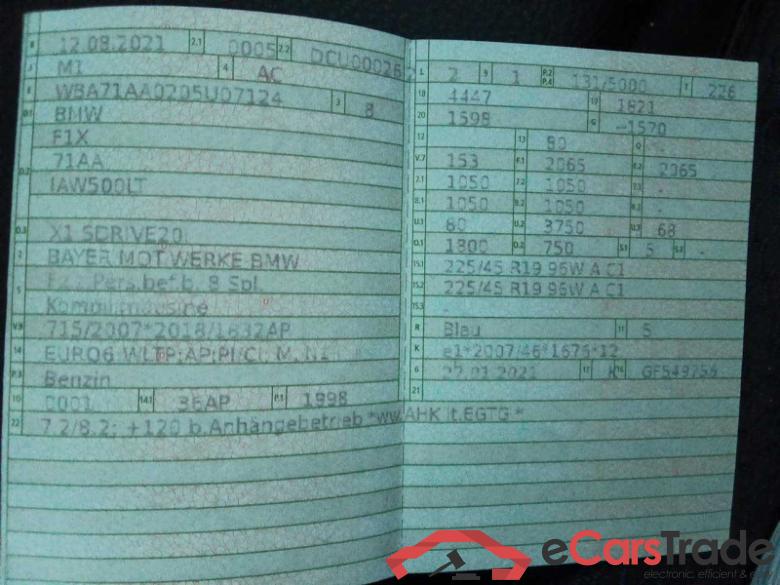 B 12.08.2021 2.1 0005 2.2 DCU00026 2
J M1 4 AC
E WBA71AA0205U07124 3 8
D.1 BMW
F1X
D.2 71AA
IAW500LT
D.3 X1 SDRIVE20I
2 BAYER.MOT.WERKE-BMW
5 Fz.z.Pers.bef.b. 8 Spl.
Kombilimousine
V.9 715/2007*2018/1832AP
14 EURO6 WLTP;AP;PI/CI; M, N1 I
P.3 Benzin
10 0001 14.1 36AP P.1 1998
22 7.2/8.2: +120 b.Anhängebetrieb *ww.AHK lt.EGTG *
L 2 9 1 P.2 P.4 131/5000 T 226
18 4447 19 1821
20 1598 G -1570
12 - 13 80 Q -
V.7 153 F.1 2065 F.2 2065
7.1 1050 7.2 1050 7.3 -
8.1 1050 8.2 1050 8.3 -
U.1 80 U.2 3750 U.3 68
O.1 1800 O.2 750 S.1 5 S.2 -
15.1 225/45 R19 96W A C1
15.2 225/45 R19 96W A C1
15.3 -
R Blau 11 5
K e1*2007/46*1676*12
6 27.01.2021 17 K 16 GF549756
21
eCarsTrade
electronic, efficient &